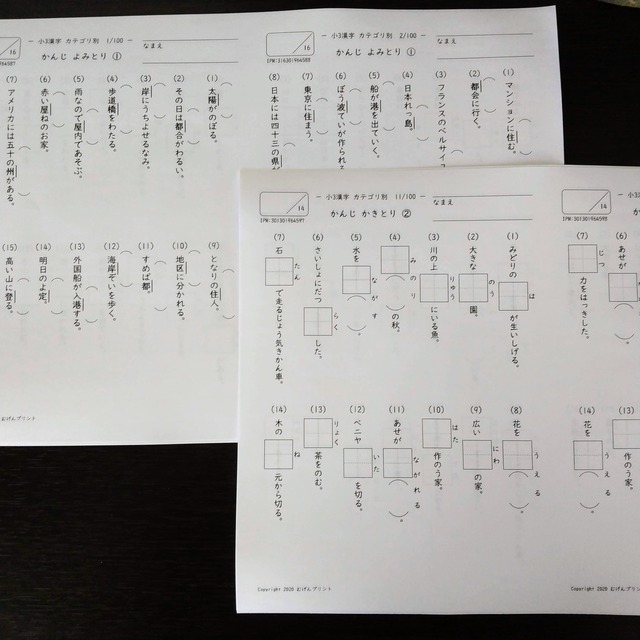 16
— 小3漢字 カテゴリ別 1/100 —
なまえ
かんじ よみとり ①
(1) 太陽がのぼる。
(2) その日は都合がわるい。
(3) 岸にうちよせるなみ。
(4) 歩道橋をわたる。
(5) 雨なので屋内であそぶ。
(6) 赤い屋ねのお家。
(7) アメリカには五十の州がある。
(9) となりの住人。
(10) 地区に分かれる。
(11) すめば都。
(12) 海岸ぞいを歩く。
(13) 外国船が入港する。
(14) 明日のよ定。
(15) 高い山に登る。
むげんプリント
16
IPM:316301964588
— 小3漢字 カテゴリ別 2/100 —
なまえ
かんじ よみとり ①
(1) マンションに住む。
(2) 都会に行く。
(3) フランスのベルサイ
(4) 日本れっ島。
(5) 船が港を出ていく。
(6) ぼう波ていが作られ
(7) 東京に住まう。
(8) 日本には四十三の県が
14
IPM:301301964597
— 小3漢字 カテゴリ別 11/100 —
なまえ
かんじ かきとり ②
(1) みどりの は が生いしげる。
(2) 大きな のう 園。
(3) 川の上 りゅう にいる魚。
(4) みのり ( )の秋。
(5) 水を ながす ( )。
(6) さいしょにだつ らく した。
(7) 石 たん で走るじょう気きかん車。
(8) 花を うえる ( )。
(9) 広い にわ の家。
(10) はた 作のう家。
(11) あせが ながれる ( )。
(12) ベニヤ いた を切る。
(13) りょく 茶をのむ。
(14) 木の ね 元から切る。
Copyright 2020 むげんプリント
14
IPM:301301964598
(6) あせが
(7) じつ 力をはっきした。
(13) 作のう家。
(14) 花を うえる ( )。
Copyright 2020 むげんプリント